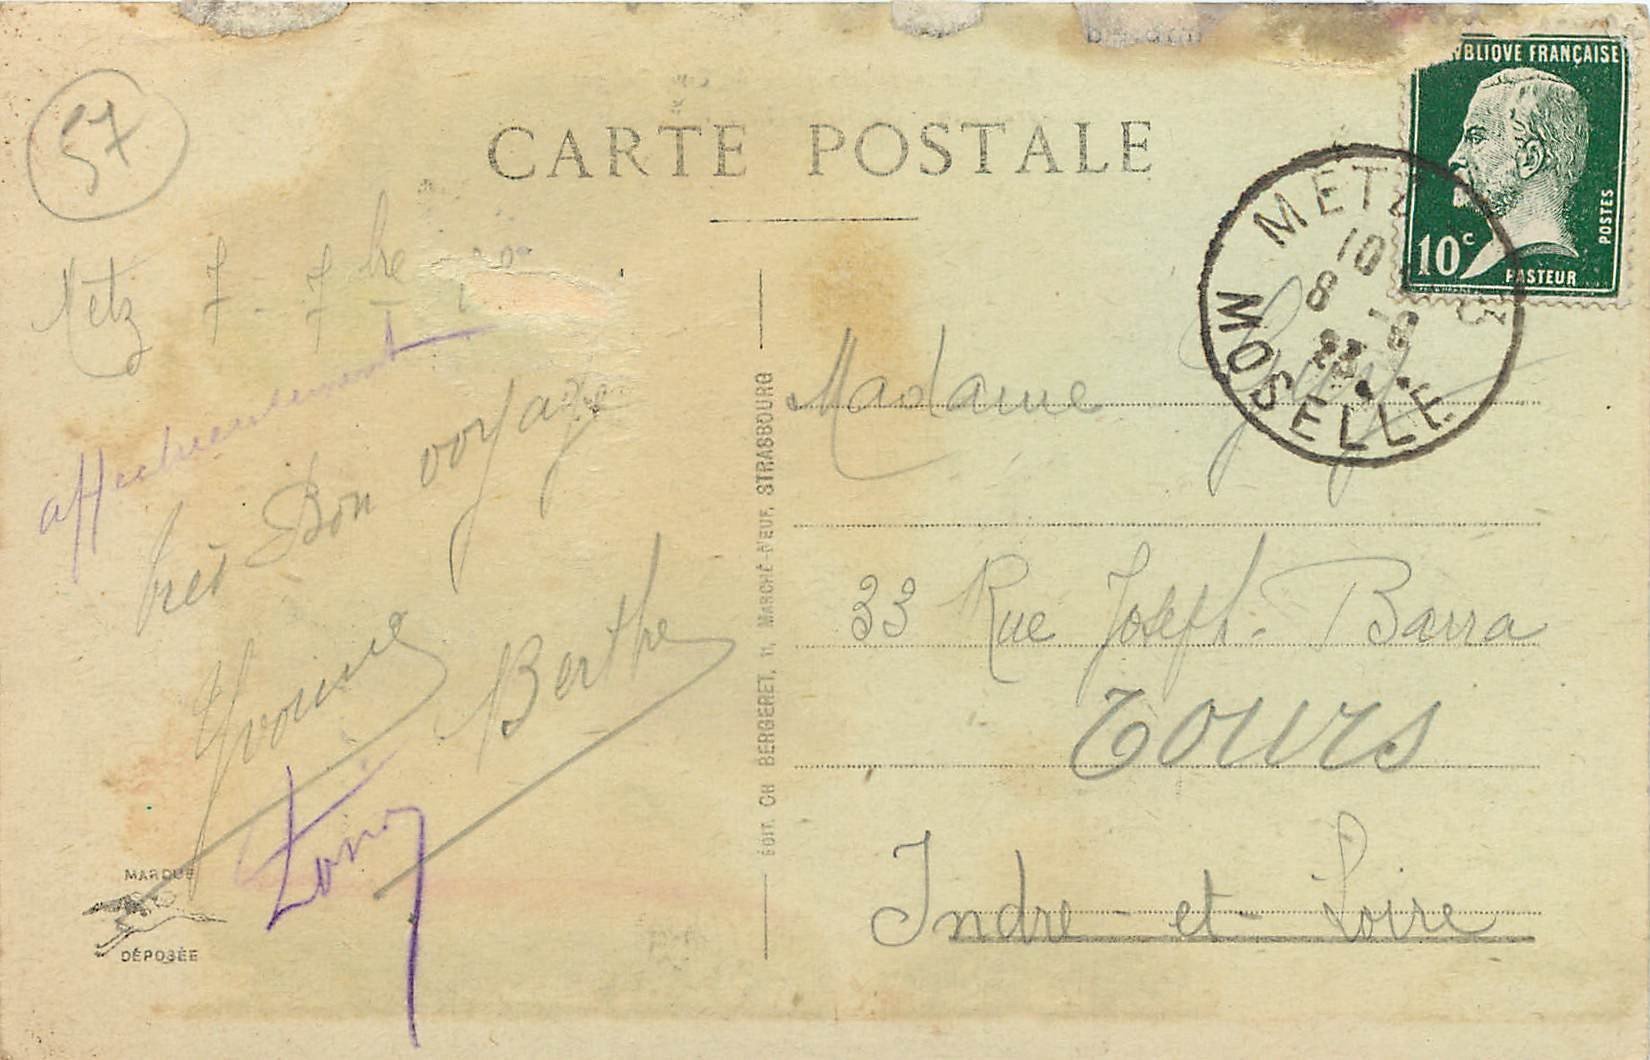 57
CARTE POSTALE
RÉPUBLIQUE FRANÇAISE
10c
POSTES
PASTEUR
METZ
10
8 -9
23
MOSELLE
Metz 7 - 7bre
affectueusement
très Bon voyage
Yvonne
Berthe
MARQUE
DÉPOSÉE
ÉDIT. CH BERGERET, 11, MARCHÉ-NEUF, STRASBOURG
Madame
33 Rue Joseph. Barra
Tours
Indre-et-Loire